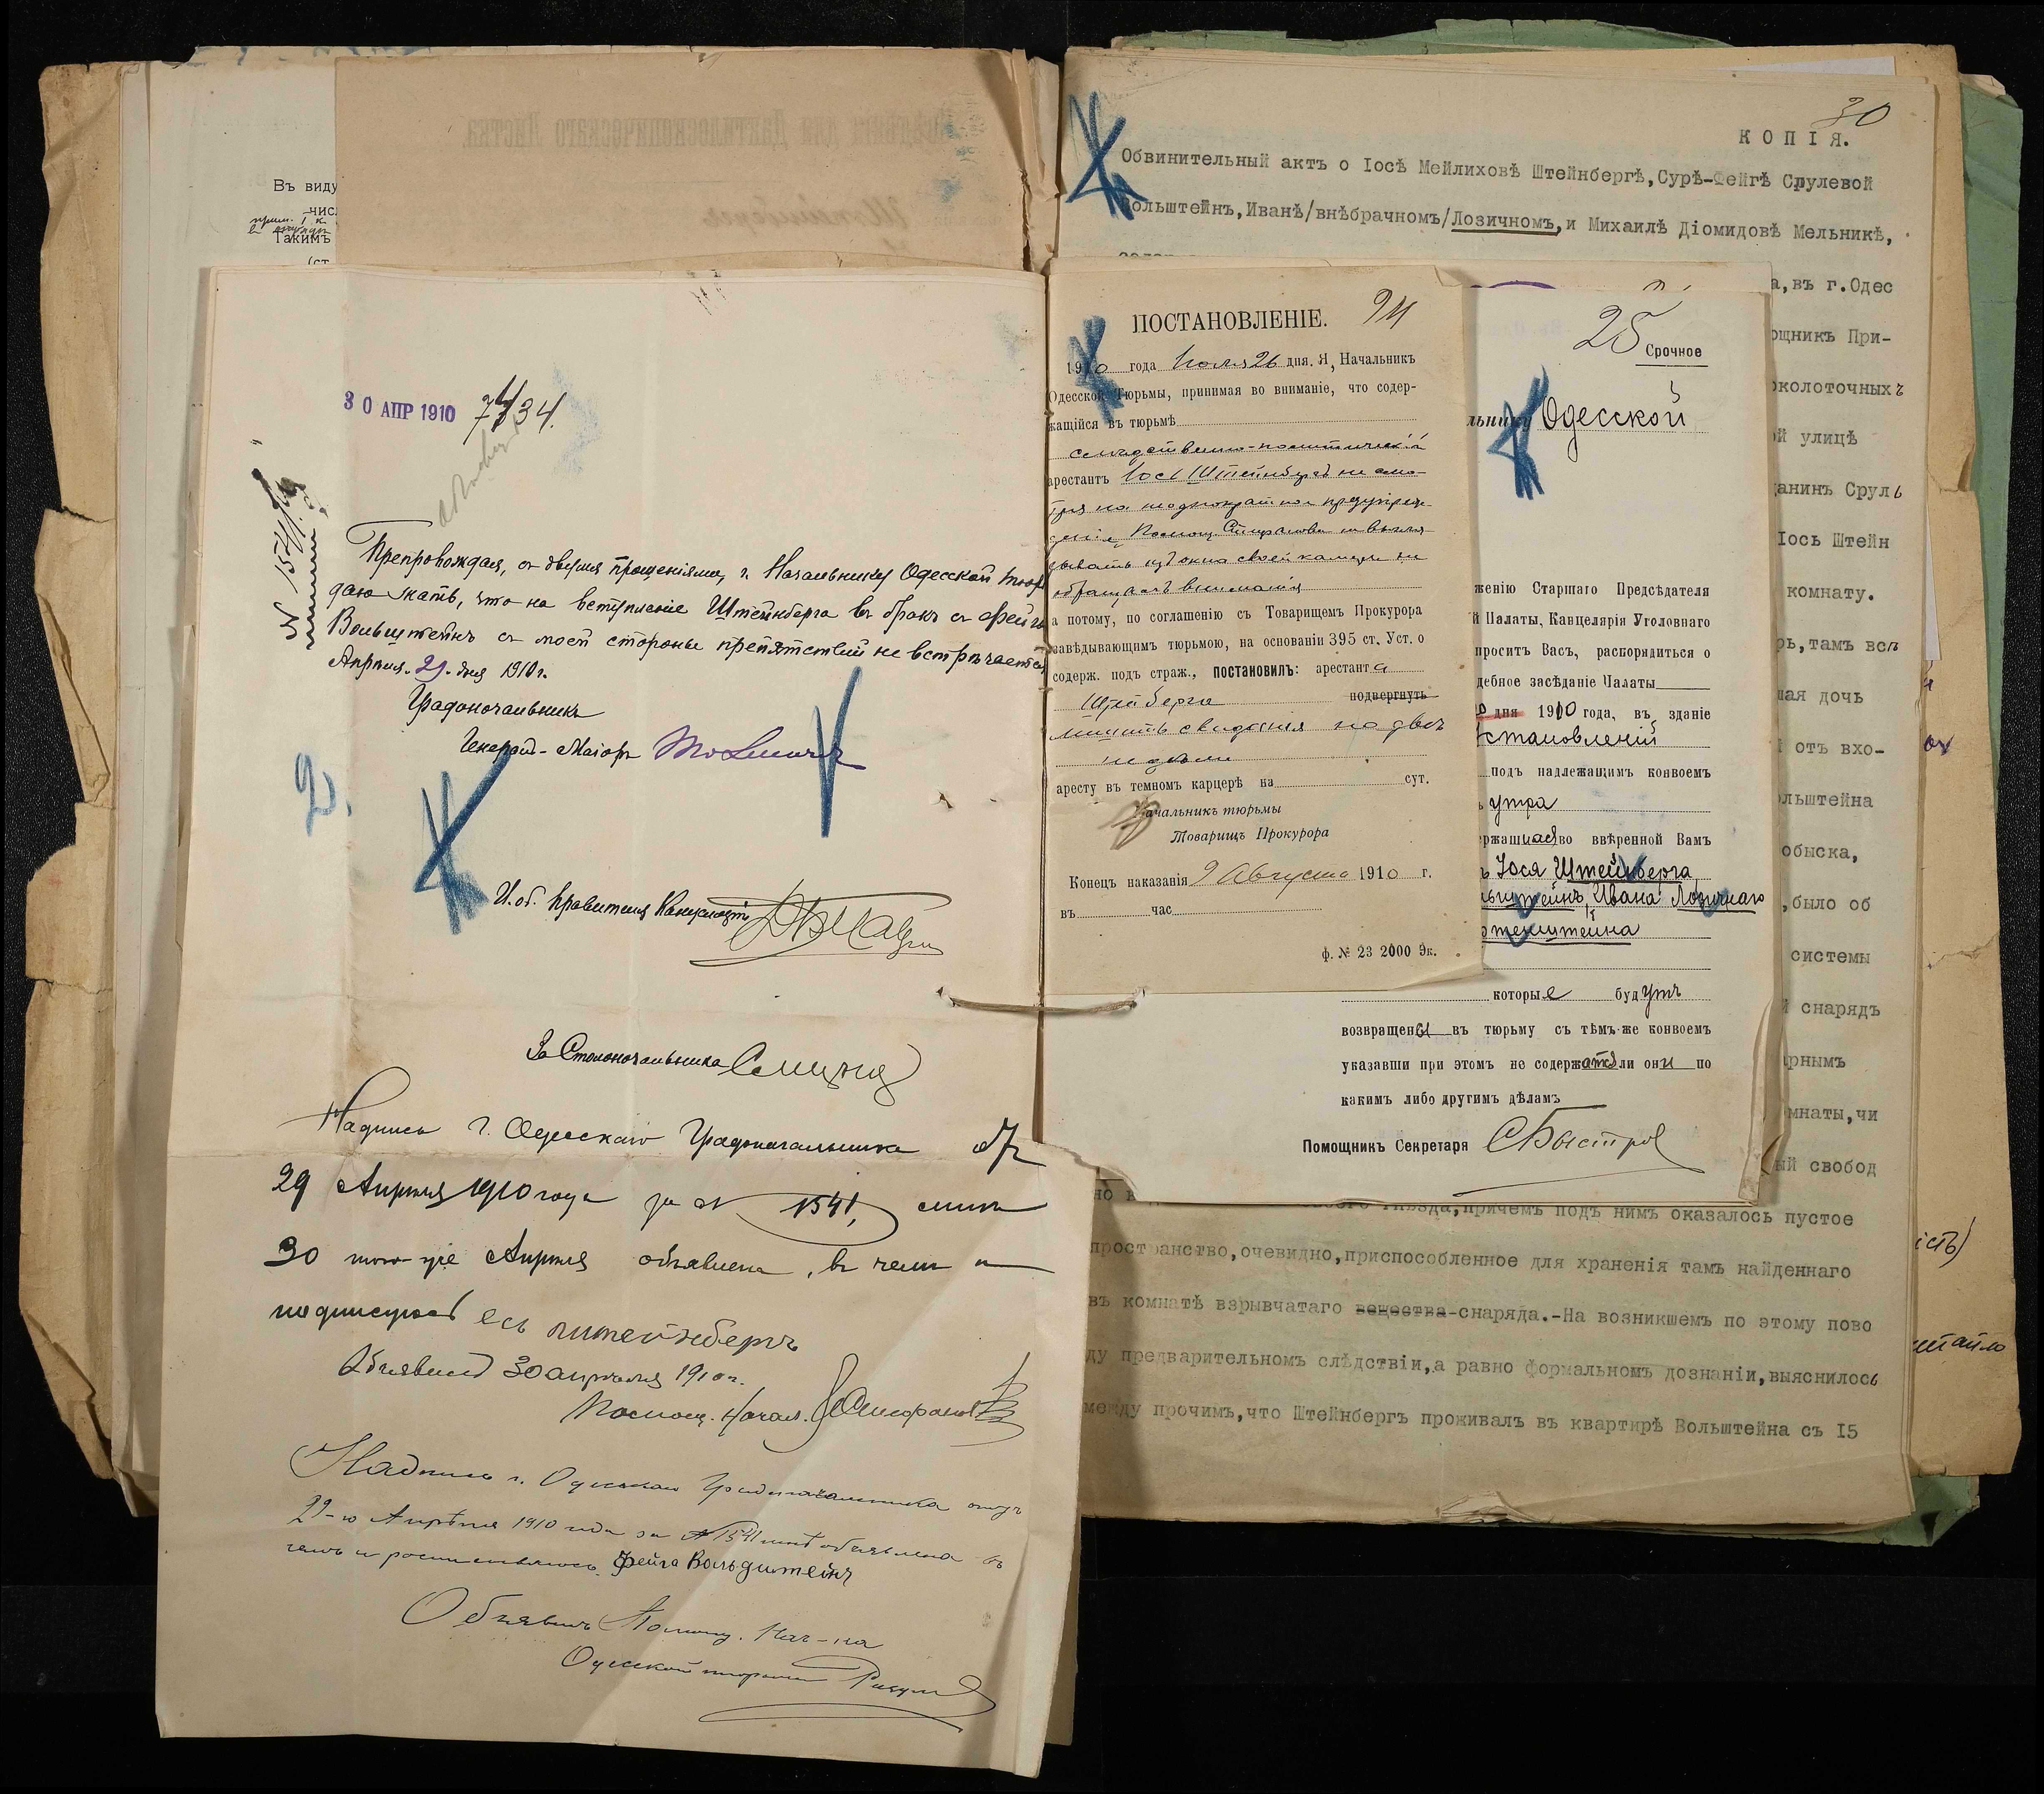 Въ виду
числ
Такимъ
(ст.
Свѣдѣнія для Дактилоскопическаго Листка.
30 АПР 1910 7434.
№ 1541.
Препровождая, съ двумя прошеніями, г. Начальнику Одесской тюрь
даю знать, что на вступленіе Штейнберга въ бракъ съ Фейгой
Вольштейнъ съ моей стороны препятствій не встрѣчается
Апрѣля 29 дня 1910 г.
Градоначальникъ
Генералъ-Маіоръ Толмачевъ
2.
И. об. Правителя Канцеляріи
За Столоначальника
Надпись г. Одесскаго Градоначальника отъ
29 Апрѣля 1910 года за № 1541, мнѣ
30 того-же Апрѣля объявлена, въ чемъ и
подписуюсь Есь Штейнбергъ
Объявилъ 30 апрѣля 1910 г.
Помощ. Начал.
Надпись г. Одесскаго Градоначальника отъ
29-го Апрѣля 1910 года за № 1541 мнѣ объявлена въ
чемъ и росписываюсь. Фейга Вольдштейнъ
Объявилъ Помощ. Нач-ка
Одесской тюрьмы
30
КОПІЯ.
Обвинительный актъ о Іосѣ Мейлиховѣ Штейнбергѣ,Сурѣ-Фейгѣ Срулевой
Вольштейнъ,Иванѣ/внѣбрачномъ/Лозичномъ,и Михаилѣ Діомидовѣ Мельникѣ,
а,въ г.Одес
ощникъ При-
околоточныхъ
ой улицѣ
данинъ Сруль
Іось Штейн
комнату.
рь,тамъ всп
шая дочь
отъ вхо-
ольштейна
обыска,
,было об
системы
й снарядъ
арнымъ
мнаты,чи
ый свобод
но к гнѣзда,причемъ подъ нимъ оказалось пустое
пространство,очевидно,приспособленное для храненія тамъ найденнаго
въ комнатѣ взрывчатаго вещества-снаряда.-На возникшемъ по этому пово
ду предварительномъ слѣдствіи,а равно формальномъ дознаніи,выяснилось
между прочимъ,что Штейнбергъ проживалъ въ квартирѣ Вольштейна съ 15
ПОСТАНОВЛЕНІЕ.
1910 года Іюля 26 дня. Я, Начальникъ
Одесской Тюрьмы, принимая во вниманіе, что содер-
жащійся въ тюрьмѣ
слѣдственно-политическій
арестантъ Іось Штейнбергъ не смо-
тря на неоднократное предупреж-
деніе Помощ. Стефанова не выгля-
дывать изъ окна своей камеры не
обращалъ вниманія
а потому, по соглашенію съ Товарищемъ Прокурора
завѣдывающимъ тюрьмою, на основаніи 395 ст. Уст. о
содерж. подъ страж., ПОСТАНОВИЛЪ: арестанта
Штейберга подвергнуть
лишить свиданія на двѣ
недѣли
аресту въ темномъ карцерѣ на сут.
Начальникъ тюрьмы
Товарищъ Прокурора
Конецъ наказанія 9 Августа 1910 г.
въ час
ф. № 23 2000 Эк.
25
Срочное
льнику Одесской
женію Старшаго Предсѣдателя
й Палаты, Канцелярія Уголовнаго
проситъ Васъ, распорядиться о
дебное засѣданіе Палаты
дня 1910 года, въ зданіе
становленій
подъ надлежащимъ конвоемъ
утра
ержащиеся во ввѣренной Вамъ
Іося Штейнберга,
льштейнъ, Ивана Лозичнаго
тенштейна
которые будутъ
возвращены въ тюрьму съ тѣмъ-же конвоемъ
указавши при этомъ не содержатся ли они по
какимъ либо другимъ дѣламъ
Помощникъ Секретаря СБыстров